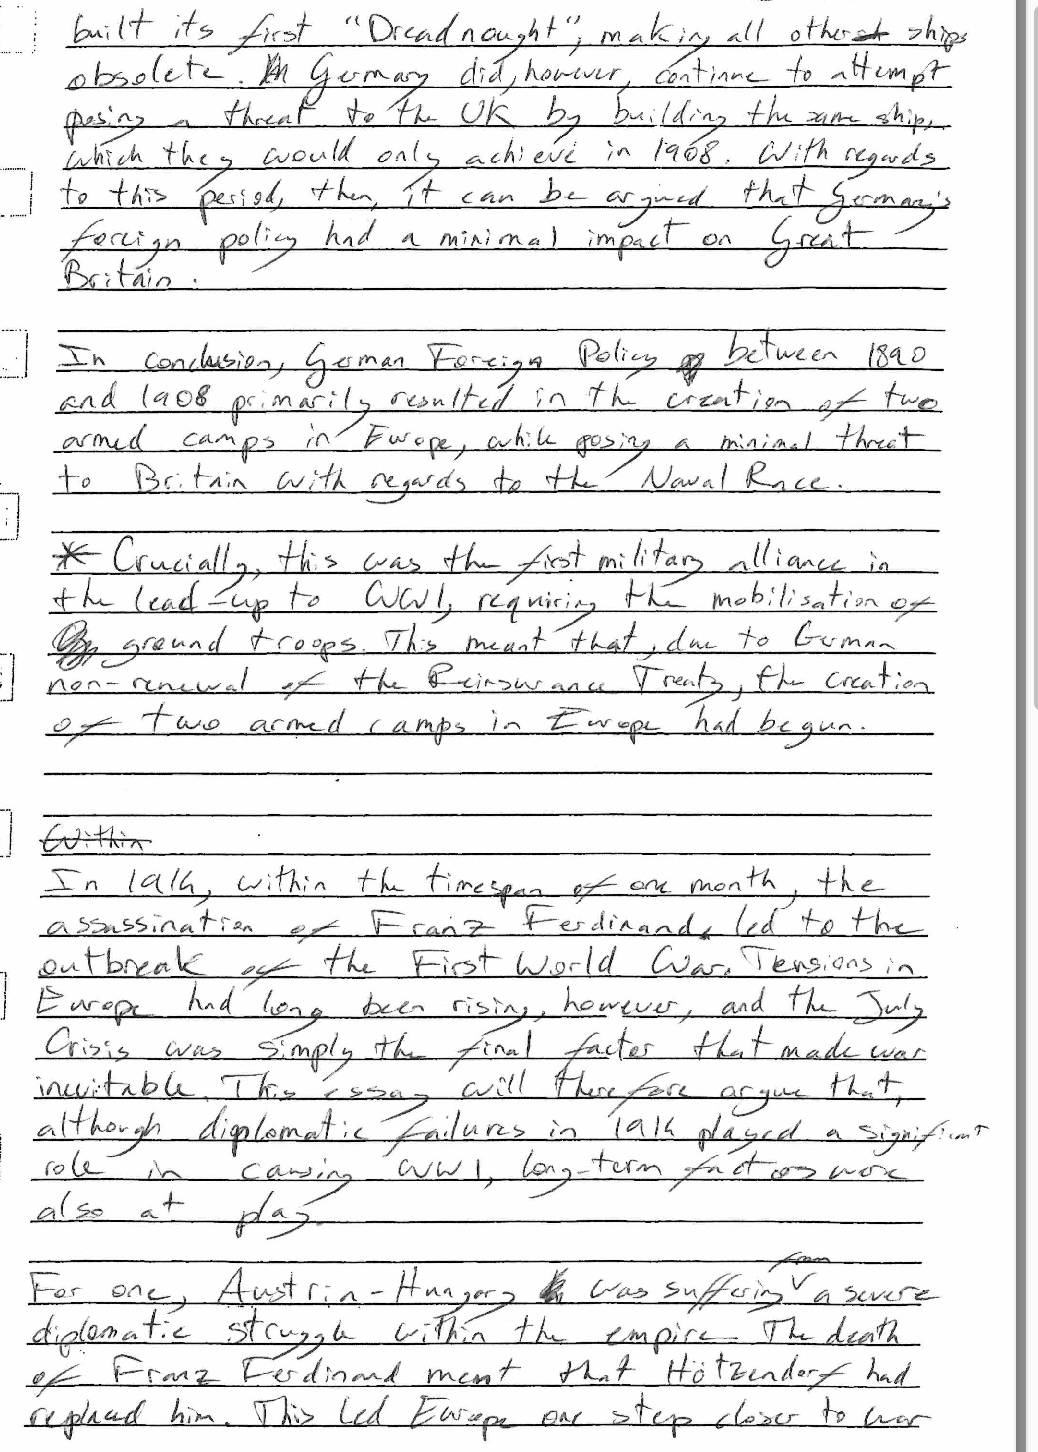 built its first "Dreadnought", making all other ships
obsolete. Germany did, however, continue to attempt
posing a threat to the UK by building the same ship,
which they would only achieve in 1908. With regards
to this period, then, it can be argued that Germany's
foreign policy had a minimal impact on Great
Britain.
In conclusion, German Foreign Policy between 1890
and 1908 primarily resulted in the creation of two
armed camps in Europe, while posing a minimal threat
to Britain with regards to the Naval Race.
* Crucially, this was the first military alliance in
the lead-up to WW1, requiring the mobilisation of
ground troops. This meant that, due to German
non-renewal of the Reinsurance Treaty, the creation
of two armed camps in Europe had begun.
Within
In 1914, within the timespan of one month, the
assassination of Franz Ferdinand, led to the
outbreak of the First World War. Tensions in
Europe had long been rising, however, and the July
Crisis was simply the final factor that made war
inevitable. This essay will therefore argue that,
although diplomatic failures in 1914 played a significant
role in causing WW1, long-term factors were
also at play.
For one, Austria-Hungary was suffering from a severe
diplomatic struggle within the empire. The death
of Franz Ferdinand meant that Hötzendorf had
replaced him. This led Europe one step closer to war